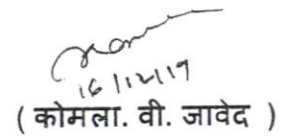 16/12/19
( कोमला. वी. जावेद )